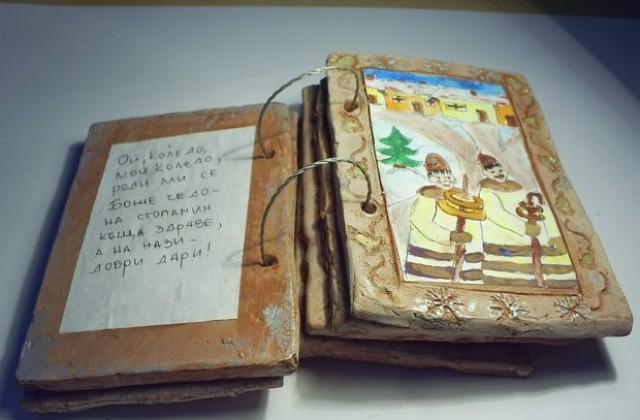 Ой, Коледо,
мой Коледо,
роди ми се
Боже чедо-
на стопанин
къща здраве,
а на нази-
добри дари!